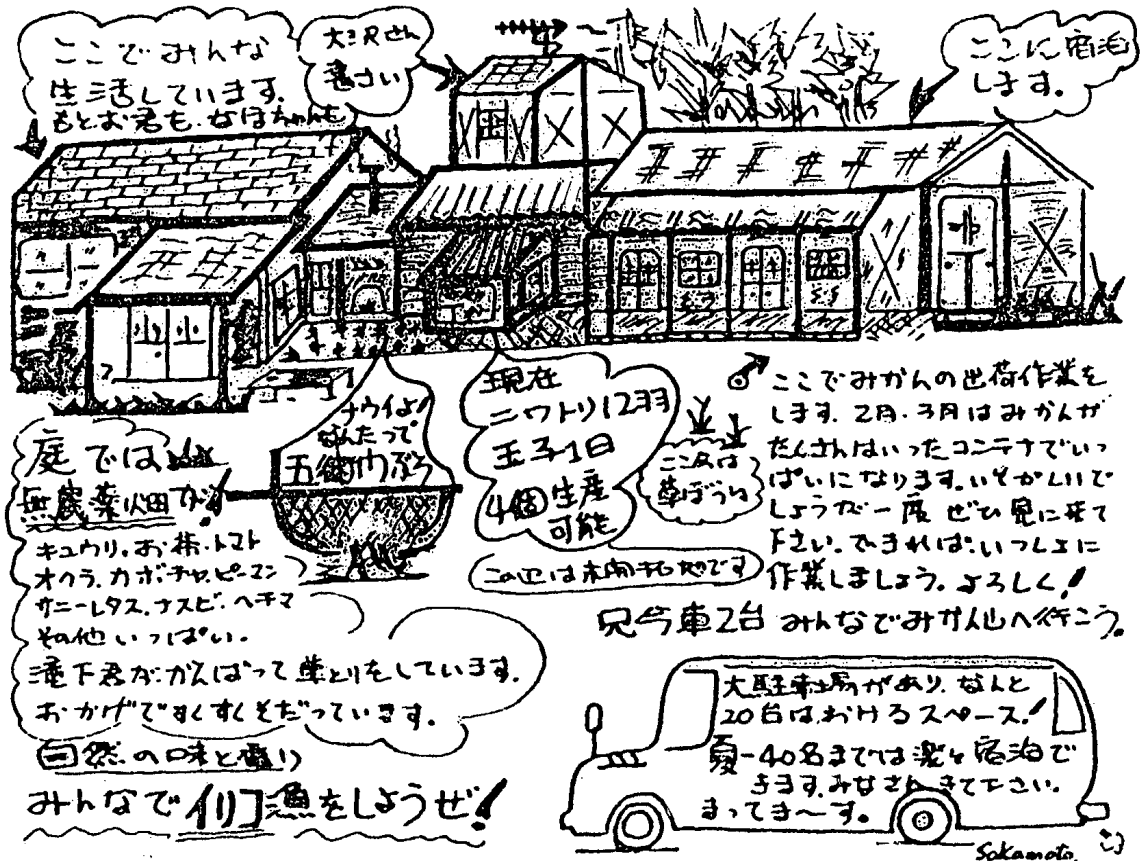 ここでみんな
生活しています。
もとお君も、なほちゃんも
大沢さん
ここに宿泊
します。
ナウイよ!
なんたって
五衛門ぶろ
現在
ニワトリ12羽
玉子1日
4個生産
可能
草ぼうぼう
この辺は未開拓地です
ここでみかんの出荷作業を
します。2月・3月はみかんが
たくさんはいったコンテナでいっ
ぱいになります。いそがしいで
しょうが一度ぜひ見に来て
下さい。できれば、いっしょに
作業しましょう。よろしく!
只今車2台 みんなでみかん山へ行こう。
庭では
無農薬畑が!
キュウリ。お茶・トマト
オクラ、カボチャ、ピーマン
サニーレタス、ナスビ、ヘチマ
その他いっぱい。
滝下君ががんばって草とりをしています。
おかげですくすくそだっています。
自然の味と香り
みんなでイリコ漁をしようぜ!
大駐車場があり、なんと
20台はおけるスペース!
夏-40名までは楽々宿泊で
きます。みなさんきて下さい。
まってま〜す。
Sakamoto